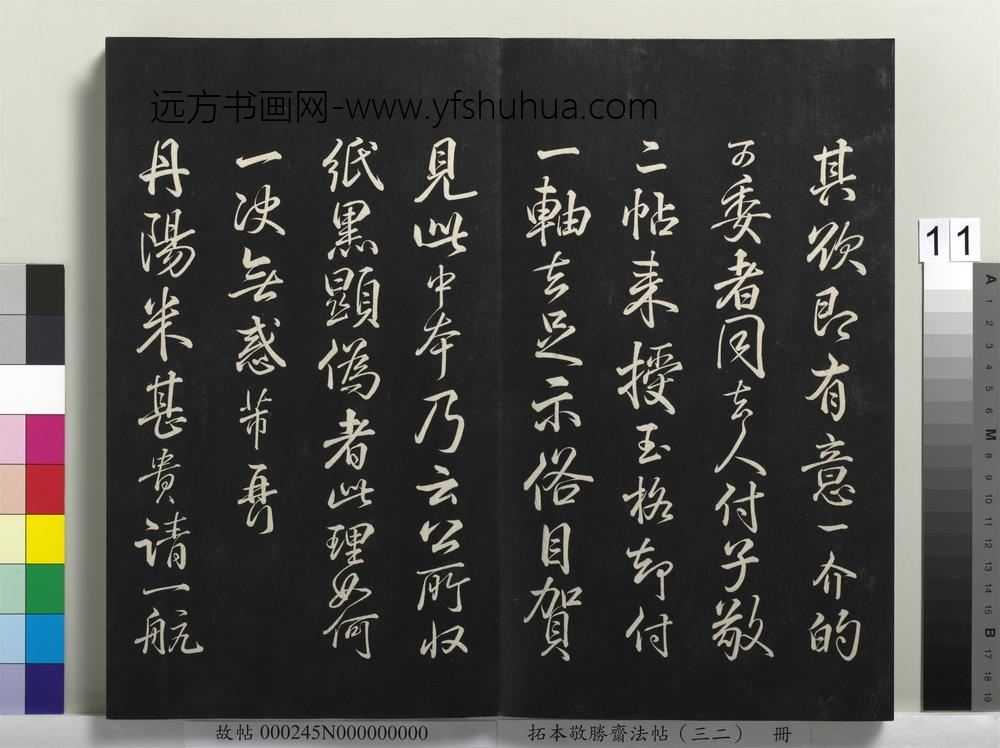 远方书画网-www.yfshuhua.com
其欲即有意一介的
可委者同去人付子敬
二帖来授玉格却付
一軸去足示俗目賀
見此中本乃云公所收
紙黒顕偽者此理如何
一决無惑芾再
丹陽米甚貴請一航
11
A 1 2 3 4 5 6 M 8 9 10 11 12 13 14 15 B 17 18 19
故帖 000245N000000000
拓本敬勝齋法帖（三二） 冊